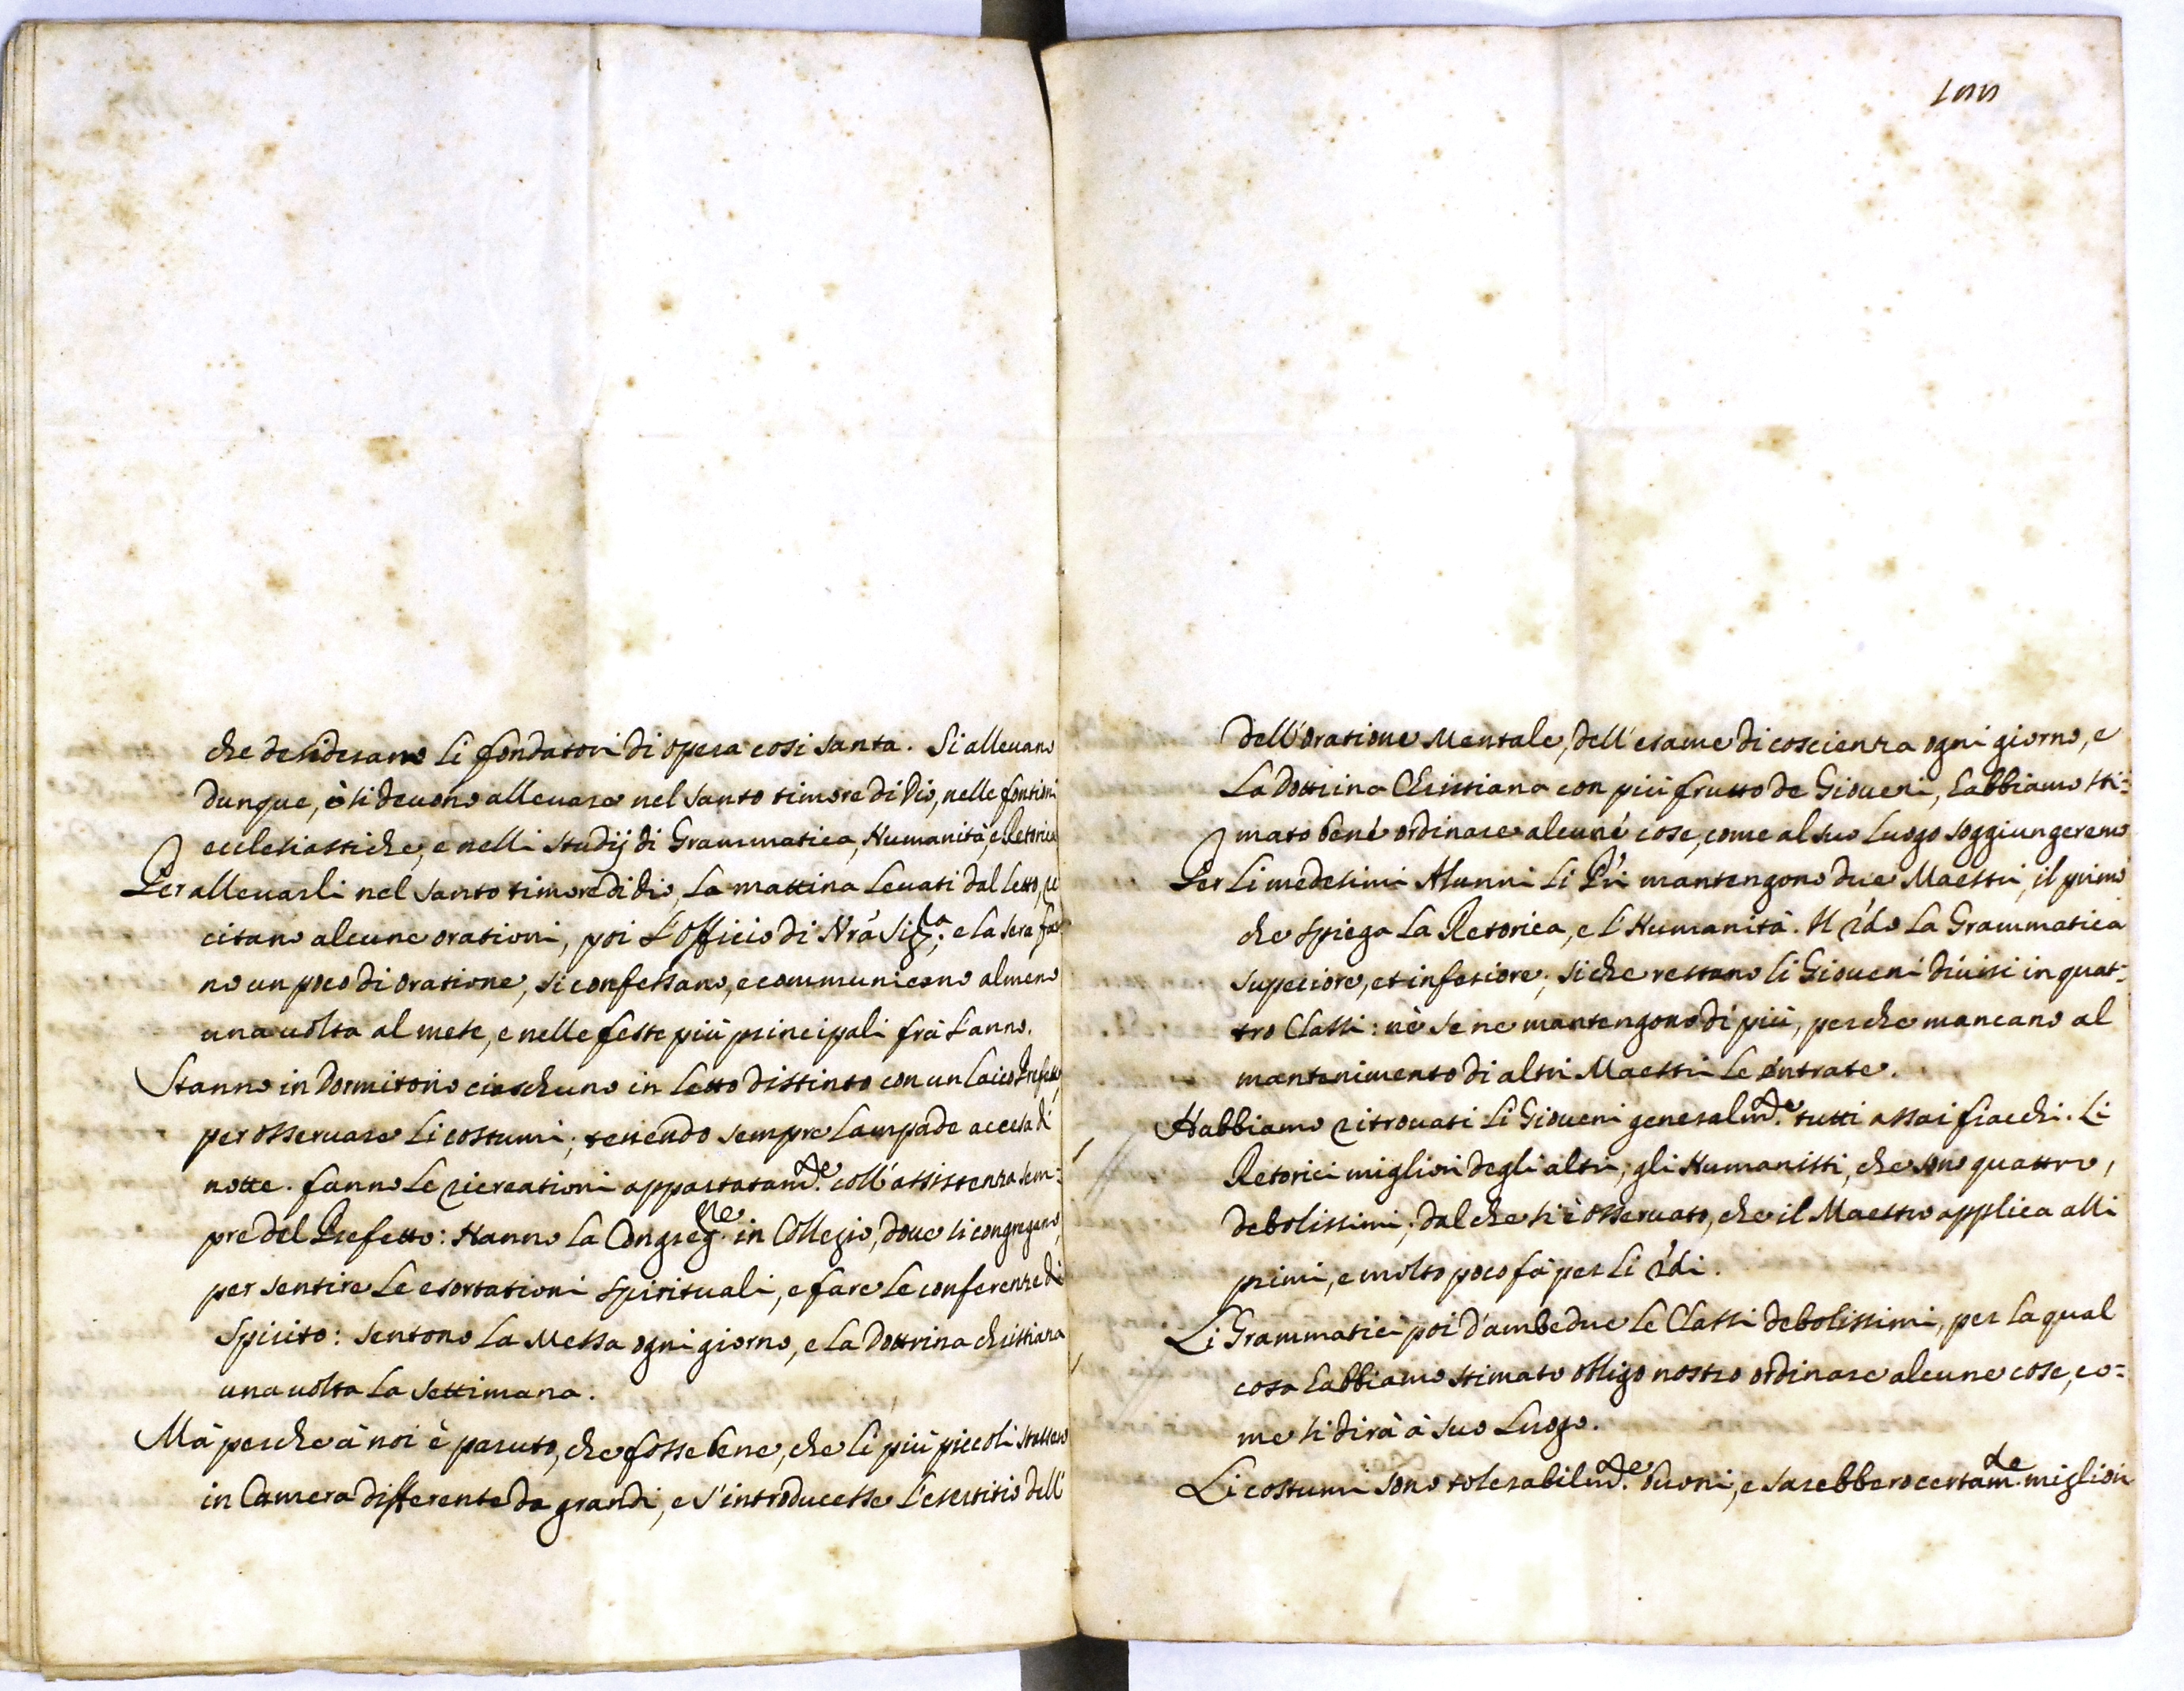 che desiderano li fondatori di opera così santa. Si alleuano
dunque, ò si deuono alleuare nel santo timore di Dio, nelle fontioni
ecclesiastiche, e nelli studij di Grammatica, Humanità, e Retorica
Per alleuarli nel santo timore di dio, la mattina leuati dal letto, re
citano alcune orationi, poi l'Officio di Nrà Sig.ra; e la sera fan
no un poco di oratione, si confessano, e communicano almeno
una uolta al mese, e nelle feste più principali frà l'anno.
Stanno in Dormitorio ciascheuno in letto distinto con un laico Prefetto,
per osseruare li costumi; tenendo sempre lampade accesa di
notte. fanno le ricreationi appartatam.te coll'assistenza sem:
pre del Prefetto: Hanno la Congreg.ne in Collegio, doue si congregano,
per sentire le esortationi spirituali, e fare le conferenze di
spirito: sentono la Messa ogni giorno, e la Dottrina christiana
una uolta la settimana.
Mà perche à noi è paruto, che fosse bene, che li più piccoli stassero
in Camera differente da grandi, e s'introducesse l'esercitio dell'
dell'oratione Mentale, dell'esame di coscienza ogni giorno, e
la Dottrina Christiana con più frutto de Gioueni, habbiamo sti:
mato bene ordinare alcune cose, come al suo luogo soggiungeremo
Per li medesimi Alunni li Pri mantengono due Maestri, il primo
che spiega la Retorica, e l'Humanità. Il 2do la Grammatica
superiore, et inferiore; si che restano li Gioueni diuisi in quat:
tro Classi: nè se ne mantengono di più, perche mancano al
mantenimento di altri Maestri le entrate.
Habbiamo ritrouati li Gioueni generalm.te tutti assai fiacchi. Li
Retorici migliori degli altri; gli Humanisti, che sono quattro,
debolissimi; dal che si è osseruato, che il Maestro applica alli
primi, e molto poco fà per li 2di.
Li Grammatici poi d'ambedue le Classi debolissimi, per la qual
cosa habbiamo stimato obligo nostro ordinare alcune cose, co:
me si dirà à suo luogo.
Li costumi sono tolerabilm.te buoni, e sarebbero certam.te migliori